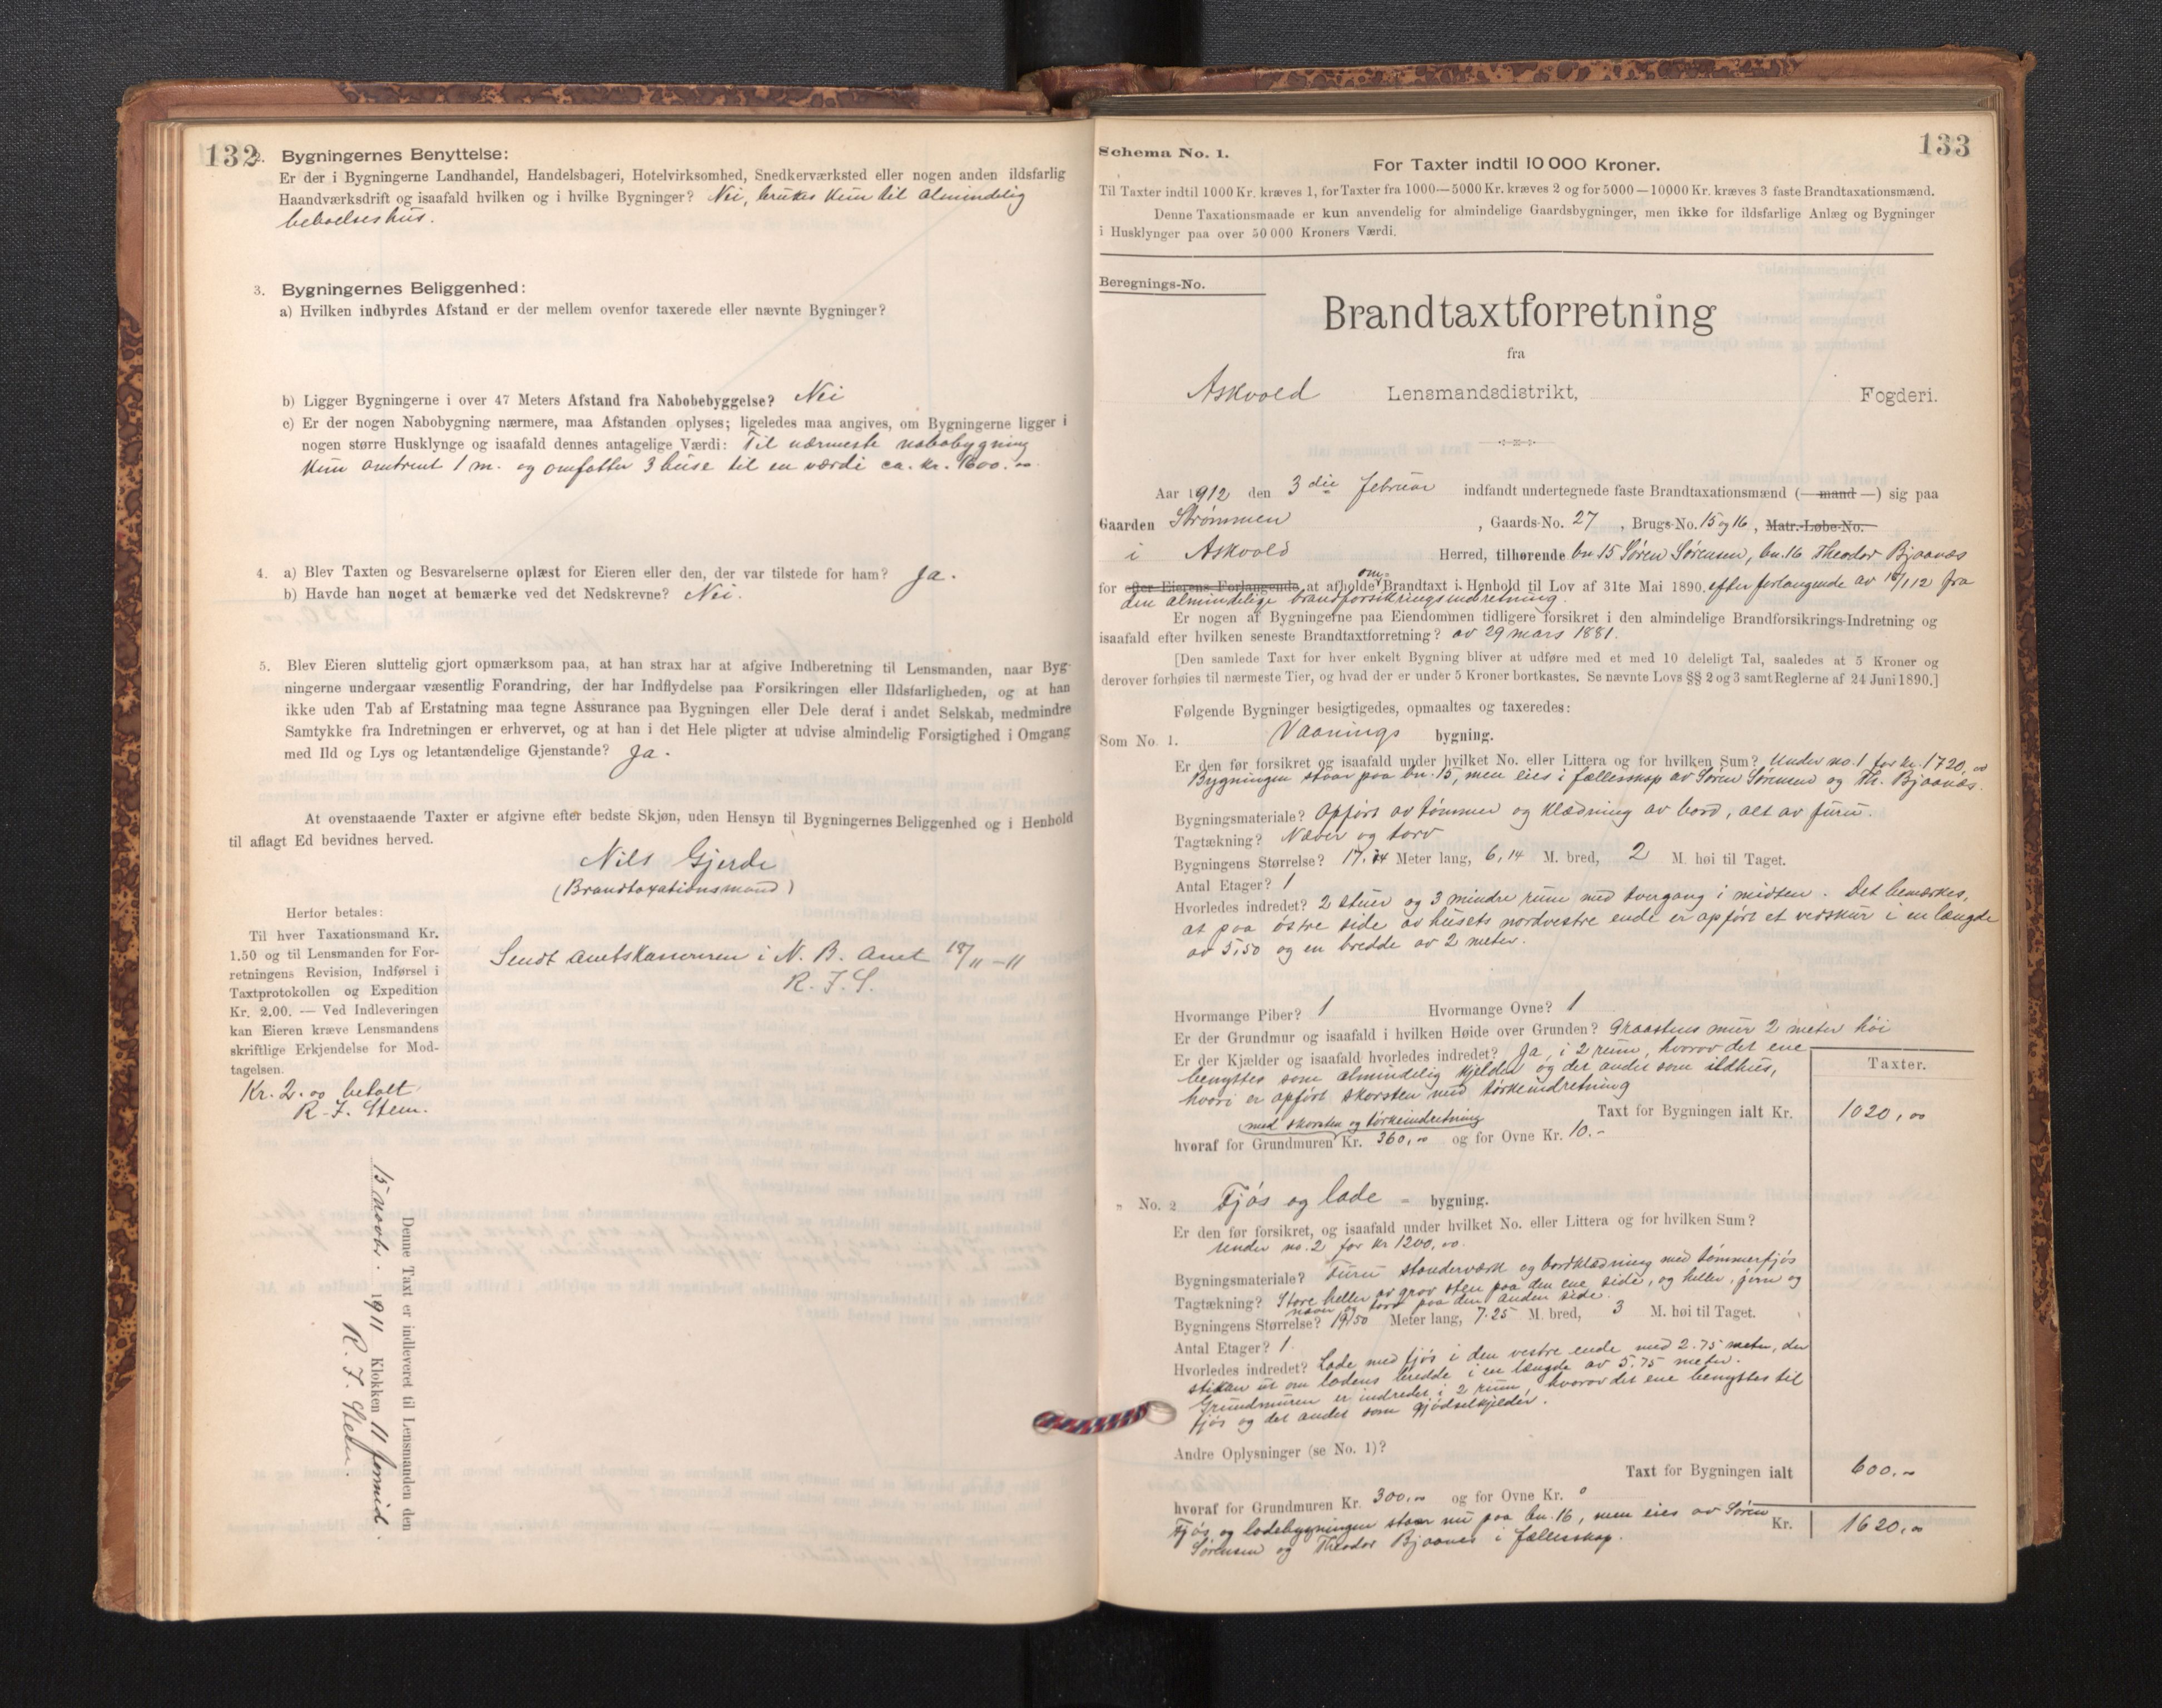 132
2. Bygningernes Benyttelse:
Er der i Bygningerne Landhandel, Handelsbageri, Hotelvirksomhed, Snedkerværksted eller nogen anden ildsfarlig
Haandværksdrift og isaafald hvilken og i hvilke Bygninger? Nei, brukes kun til almindelig
beboelseshus.
3. Bygningernes Beliggenhed:
a) Hvilken indbyrdes Afstand er der mellem ovenfor taxerede eller nævnte Bygninger?
b) Ligger Bygningerne i over 47 Meters Afstand fra Nabobebyggelse? Nei
c) Er der nogen Nabobygning nærmere, maa Afstanden oplyses; ligeledes maa angives, om Bygningerne ligger i
nogen større Husklynge og isaafald dennes antagelige Værdi: Til nærmeste nabobygning
kun omtrent 1 m. og omfatter 3 huse til en værdi ca. kr. 1600.00
4. a) Blev Taxten og Besvarelserne oplæst for Eieren eller den, der var tilstede for ham? Ja.
b) Havde han noget at bemærke ved det Nedskrevne? Nei.
5. Blev Eieren sluttelig gjort opmærksom paa, at han strax har at afgive Indberetning til Lensmanden, naar Byg-
ningerne undergaar væsentlig Forandring, der har Indflydelse paa Forsikringen eller Ildsfarligheden, og at han
ikke uden Tab af Erstatning maa tegne Assurance paa Bygningen eller Dele deraf i andet Selskab, medmindre
Samtykke fra Indretningen er erhvervet, og at han i det Hele pligter at udvise almindelig Forsigtighed i Omgang
med Ild og Lys og letantændelige Gjenstande? Ja.
At ovenstaaende Taxter er afgivne efter bedste Skjøn, uden Hensyn til Bygningernes Beliggenhed og i Henhold
til aflagt Ed bevidnes herved.
Nils Gjerde
(Brandtaxationsmand)
Herfor betales:
Til hver Taxationsmand Kr.
1.50 og til Lensmanden for For-
retningens Revision, Indførsel i
Taxtprotokollen og Expedition
Kr. 2.00. — Ved Indleveringen
kan Eieren kræve Lensmandens
skriftlige Erkjendelse for Mod-
tagelsen.
Sendt Amtskassereren i N. B. Amt 18/11-11
R. J. S.
Kr. 2.00 betalt
R. J. Stem.
Denne Taxt er indleveret til Lensmanden den
15 novbr. 1911 Klokken 11 formid.
R. J. Stem.
133
Schema No. 1.
For Taxter indtil 10 000 Kroner.
Til Taxter indtil 1000 Kr. kræves 1, for Taxter fra 1000—5000 Kr. kræves 2 og for 5000—10000 Kr. kræves 3 faste Brandtaxationsmænd.
Denne Taxationsmaade er kun anvendelig for almindelige Gaardsbygninger, men ikke for ildsfarlige Anlæg og Bygninger
i Husklynger paa over 50 000 Kroners Værdi.
Beregnings-No.
Brandtaxtforretning
fra
Askvold Lensmandsdistrikt, Fogderi.
Aar 1912 den 3die februar indfandt undertegnede faste Brandtaxationsmænd (— mand —) sig paa
Gaarden Strømmen, Gaards-No. 27, Brugs-No. 15 og 16, Matr.-Løbe-No.
i Askvold Herred, tilhørende bn. 15 Søren Sørensen, bn. 16 Theodor Bjaanæs
for efter Eierens Forlangende at afholde om- Brandtaxt i Henhold til Lov af 31te Mai 1890. efter forlangende av 16/1 12 fra
den almindelige brandforsikringsindretning.
Er nogen af Bygningerne paa Eiendommen tidligere forsikret i den almindelige Brandforsikrings-Indretning og
isaafald efter hvilken seneste Brandtaxtforretning? av 29 mars 1881.
[Den samlede Taxt for hver enkelt Bygning bliver at udføre med et med 10 deleligt Tal, saaledes at 5 Kroner og
derover forhøies til nærmeste Tier, og hvad der er under 5 Kroner bortkastes. Se nævnte Lovs §§ 2 og 3 samt Reglerne af 24 Juni 1890.]
Følgende Bygninger besigtigedes, opmaaltes og taxeredes:
Som No. 1. Vaanings bygning.
Er den før forsikret og isaafald under hvilket No. eller Littera og for hvilken Sum? Under no. 1 for kr. 1720,00
Bygningen staar paa bn. 15, men eies i fællesskap av Søren Sørensen og Th. Bjaanæs.
Bygningsmateriale? Opført av tømmer og klædning av bord, alt av furu.
Tagtækning? Næver og torv
Bygningens Størrelse? 17,74 Meter lang, 6,14 M. bred, 2 M. høi til Taget.
Antal Etager? 1
Hvorledes indredet? 2 stuer og 3 mindre rum med tvergang i midten. Det bemerkes,
at paa østre side av husets nordvestre ende er opført et vedskur i en længde
av 5,50 og en bredde av 2 meter.
Hvormange Piber? 1 Hvormange Ovne? 1
Er der Grundmur og isaafald i hvilken Høide over Grunden? Graastens mur 2 meter høi
Er der Kjælder og isaafald hvorledes indredet? Ja, i 2 rum, hvorav det ene
benyttes som almindelig kjelder og det andet som ildhus,
hvori er opført skorsten med tørkeindretning
Taxter.
Taxt for Bygningen ialt Kr. 1020,00
med skorsten og tørkeindretning
hvoraf for Grundmuren Kr. 360,00 og for Ovne Kr. 10.-
" No. 2 Fjøs og lade - bygning.
Er den før forsikret, og isaafald under hvilket No. eller Littera og for hvilken Sum?
Under no. 2 for kr 1200,00.
Bygningsmateriale? Furu stenderværk og bordklædning med tømmerfjøs
Tagtækning? Store heller av grov sten paa den ene side, og heller, jern og
næver og torv paa den anden side.
Bygningens Størrelse? 19,50 Meter lang, 7.25 M. bred, 3 M. høi til Taget.
Antal Etager? 1
Hvorledes indredet? Lade med fjøs i den vestre ende med 2.75 meter, der
stikker ut om ladens bredde i en længde av 5.75 meter.
Grundmuren er indredet i 2 rum, hvorav det ene benyttes til
fjøs og det andet som gjødselkjelder.
Andre Oplysninger (se No. 1)?
Taxt for Bygningen ialt 600.-
hvoraf for Grundmuren Kr. 300,00 og for Ovne Kr. 0
Kr. 1620,00
Fjøs og ladebygningen staar nu paa bn. 16, men eies av Søren
Sørensen og Theodor Bjaanes i fællesskap.